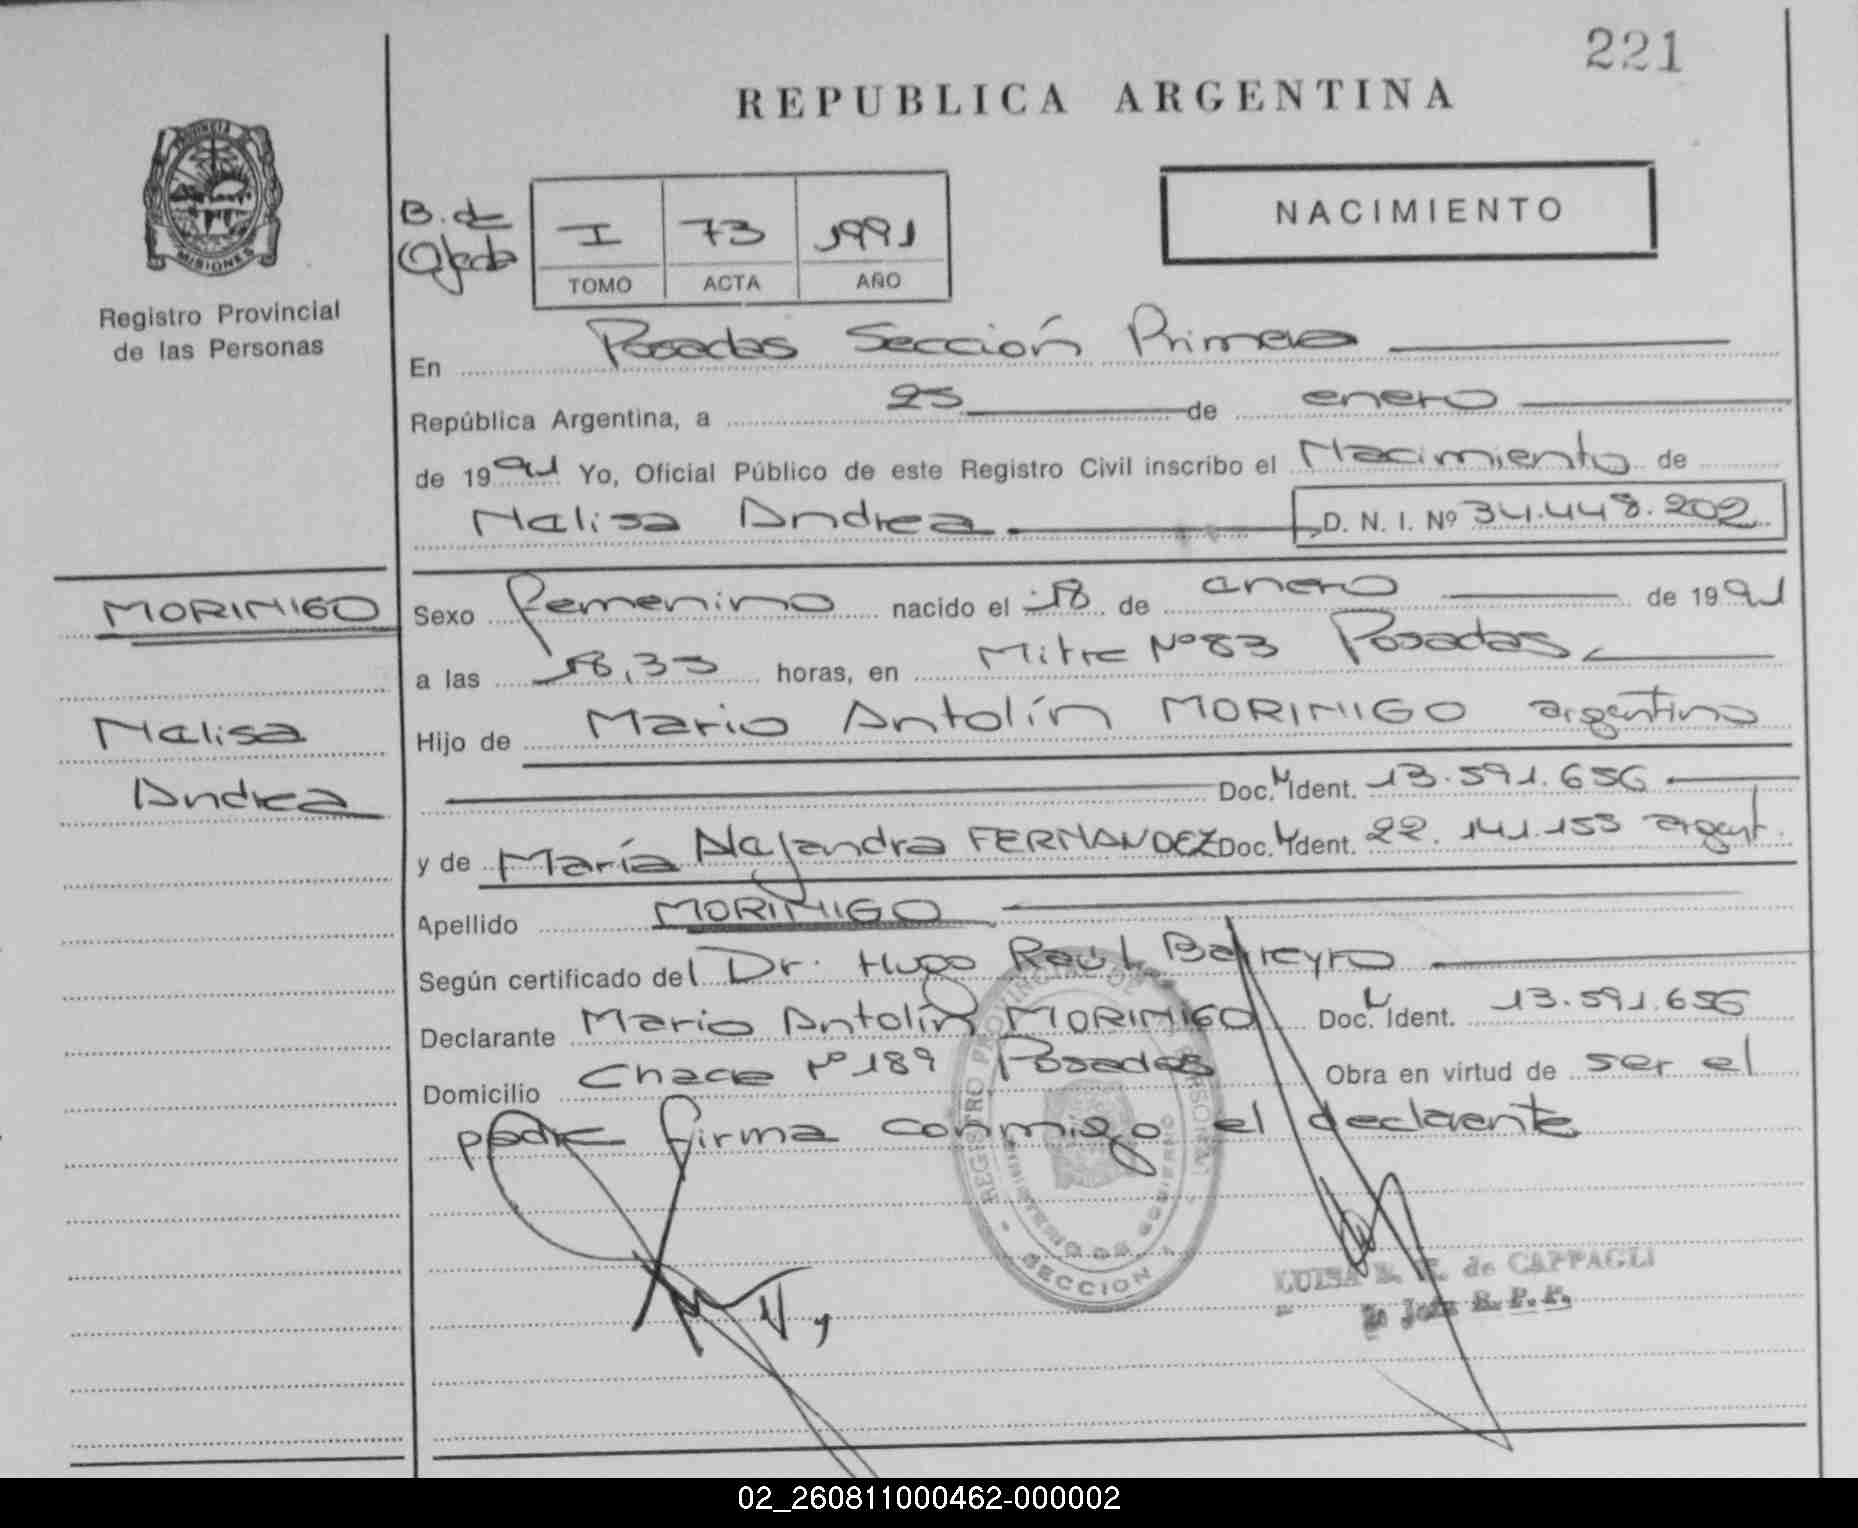 221
REPUBLICA ARGENTINA
PROVINCIA
MISIONES
Registro Provincial
de las Personas
B. de
Ojeda
I 73 1991
TOMO ACTA AÑO
NACIMIENTO
En Posadas Sección Primera
República Argentina, a 25 de enero
de 1991 Yo, Oficial Público de este Registro Civil inscribo el Nacimiento de
Nalisa Andrea D. N. I. Nº 34.448.202
MORINIGO
Nalisa
Andrea
Sexo femenino nacido el 18 de enero de 1991
a las 18,35 horas, en Mitre Nº 83 Posadas
Hijo de Mario Antolín MORINIGO argentino
Doc. N Ident. 13.591.656
y de María Alejandra FERNANDEZ Doc. N Ident. 22.141.155 argent.
Apellido MORINIGO
Según certificado del Dr. Hugo Raúl Barreyro
Declarante Mario Antolín MORINIGO Doc. N Ident. 13.591.656
Domicilio Nº 189 Posadas Obra en virtud de ser el
padre firma conmigo el declarante
REGISTRO PROVINCIAL DE PERSONAS
MINISTERIO DE GOBIERNO
SECCION
LUISA de CAPPAGLI
R. P. P.
02_260811000462-000002